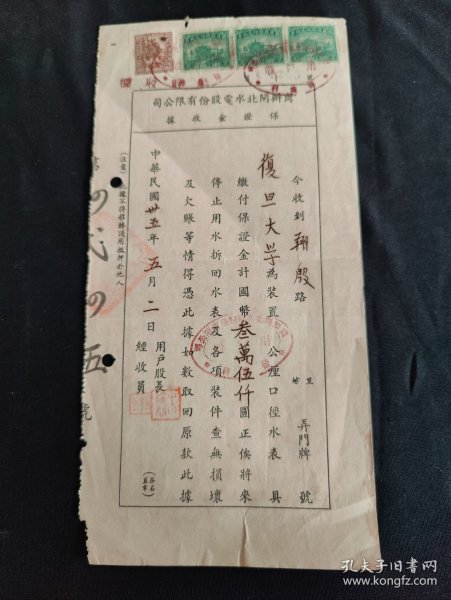 收據
商辦閘北水電股份有限公司
保證金收據
今收到 翔殷 路 里坊 弄門牌 號
復旦大学 為裝置 公厘口徑水表 具
繳付保證金計國幣 叁萬伍仟 圓正俟將來
停止用水拆回水表及各項裝件查無損壞
及欠賬等情得憑此據如數取回原款此據
中華民國 卅五 年 五 月 二 日
用戶股長
經收員
(簽名蓋章)
(注意)此據不得移轉讓用抵押於他人
第 四弍四五 號
孔夫子旧书网
www.kongfz.com